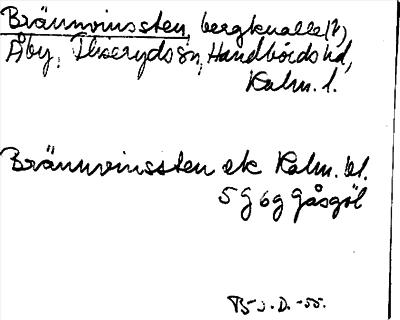 Brännvinssten, bergknalle(?),
Åby, Thiseryds sn, Handbörds hd,
Kalm. l.
Brännvinssten ek Kalm. bl.
5 g 6 g Gåsgöl
-55.